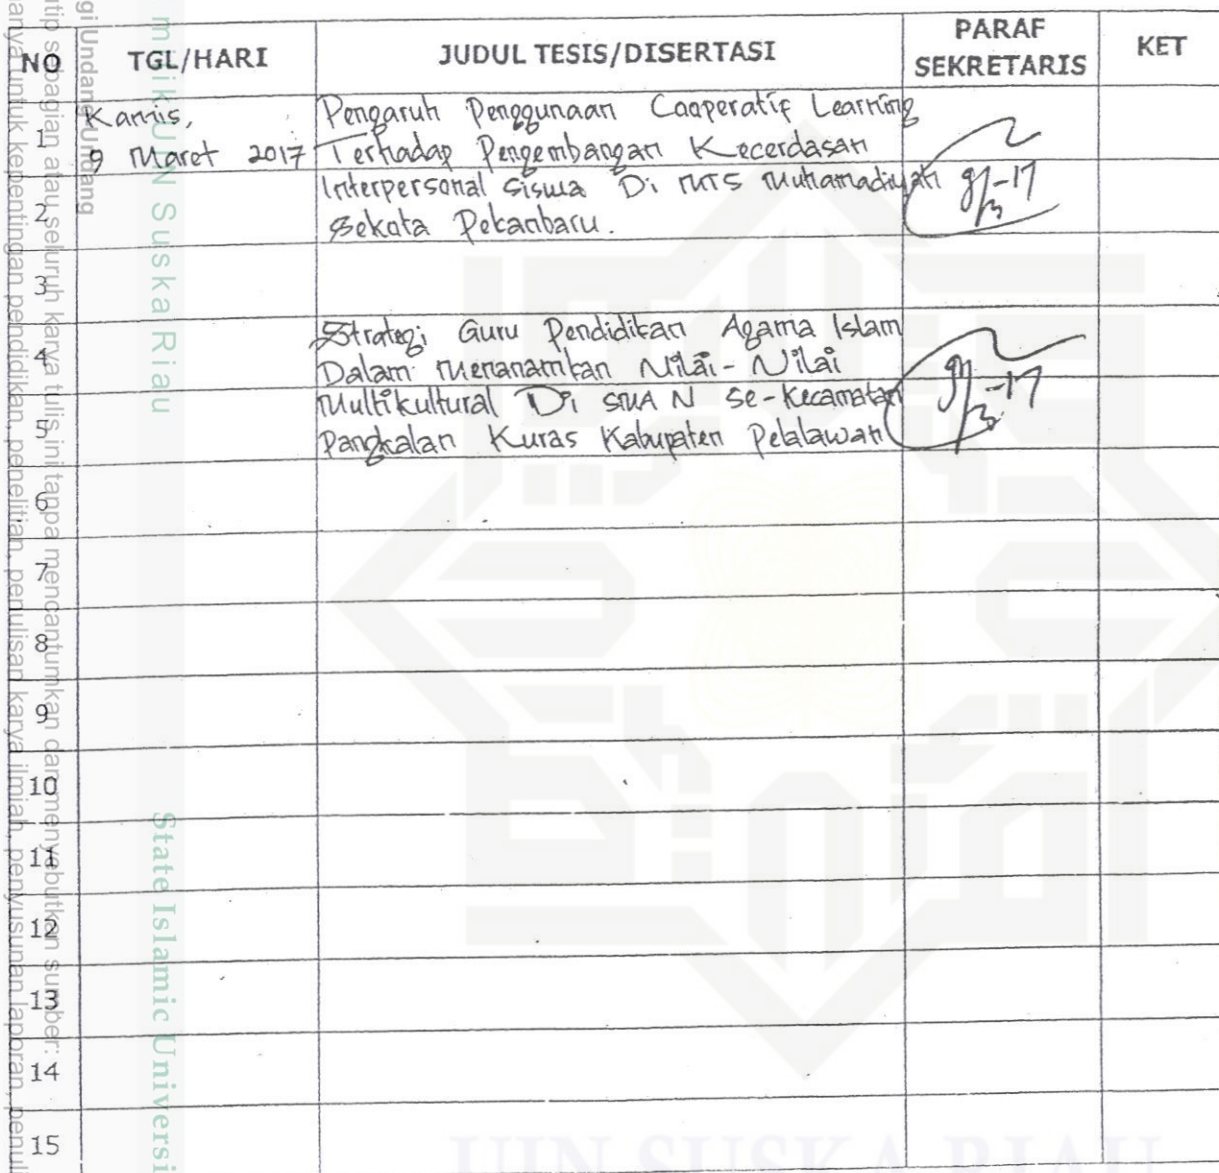 NO TGL/HARI JUDUL TESIS/DISERTASI PARAF SEKRETARIS KET
Kamis,
1 9 Maret 2017
Pengaruh Penggunaan Cooperatif Learning
Terhadap Pengembangan Kecerdasan
Interpersonal siswa Di MTS Muhamadiyah
2 Sekota Pekanbaru.
9/3-17
3
Strategi Guru Pendidikan Agama Islam
4 Dalam Menanamkan Nilai-Nilai
Multikultural Di SMA N Se-Kecamatan
5 Pangkalan Kuras Kabupaten Pelalawan
9/3-17
6
7
8
9
10
11
12
13
14
15
gi Undang-Undang
tip sebagian atau seluruh karya tulis ini tanpa mencantumkan dan menyebutkan sumber:
anya untuk kepentingan pendidikan, penelitian, penulisan karya ilmiah, penyusunan laporan, penuli
milik UIN Suska Riau
State Islamic Universi
UIN SUSKA RIAU